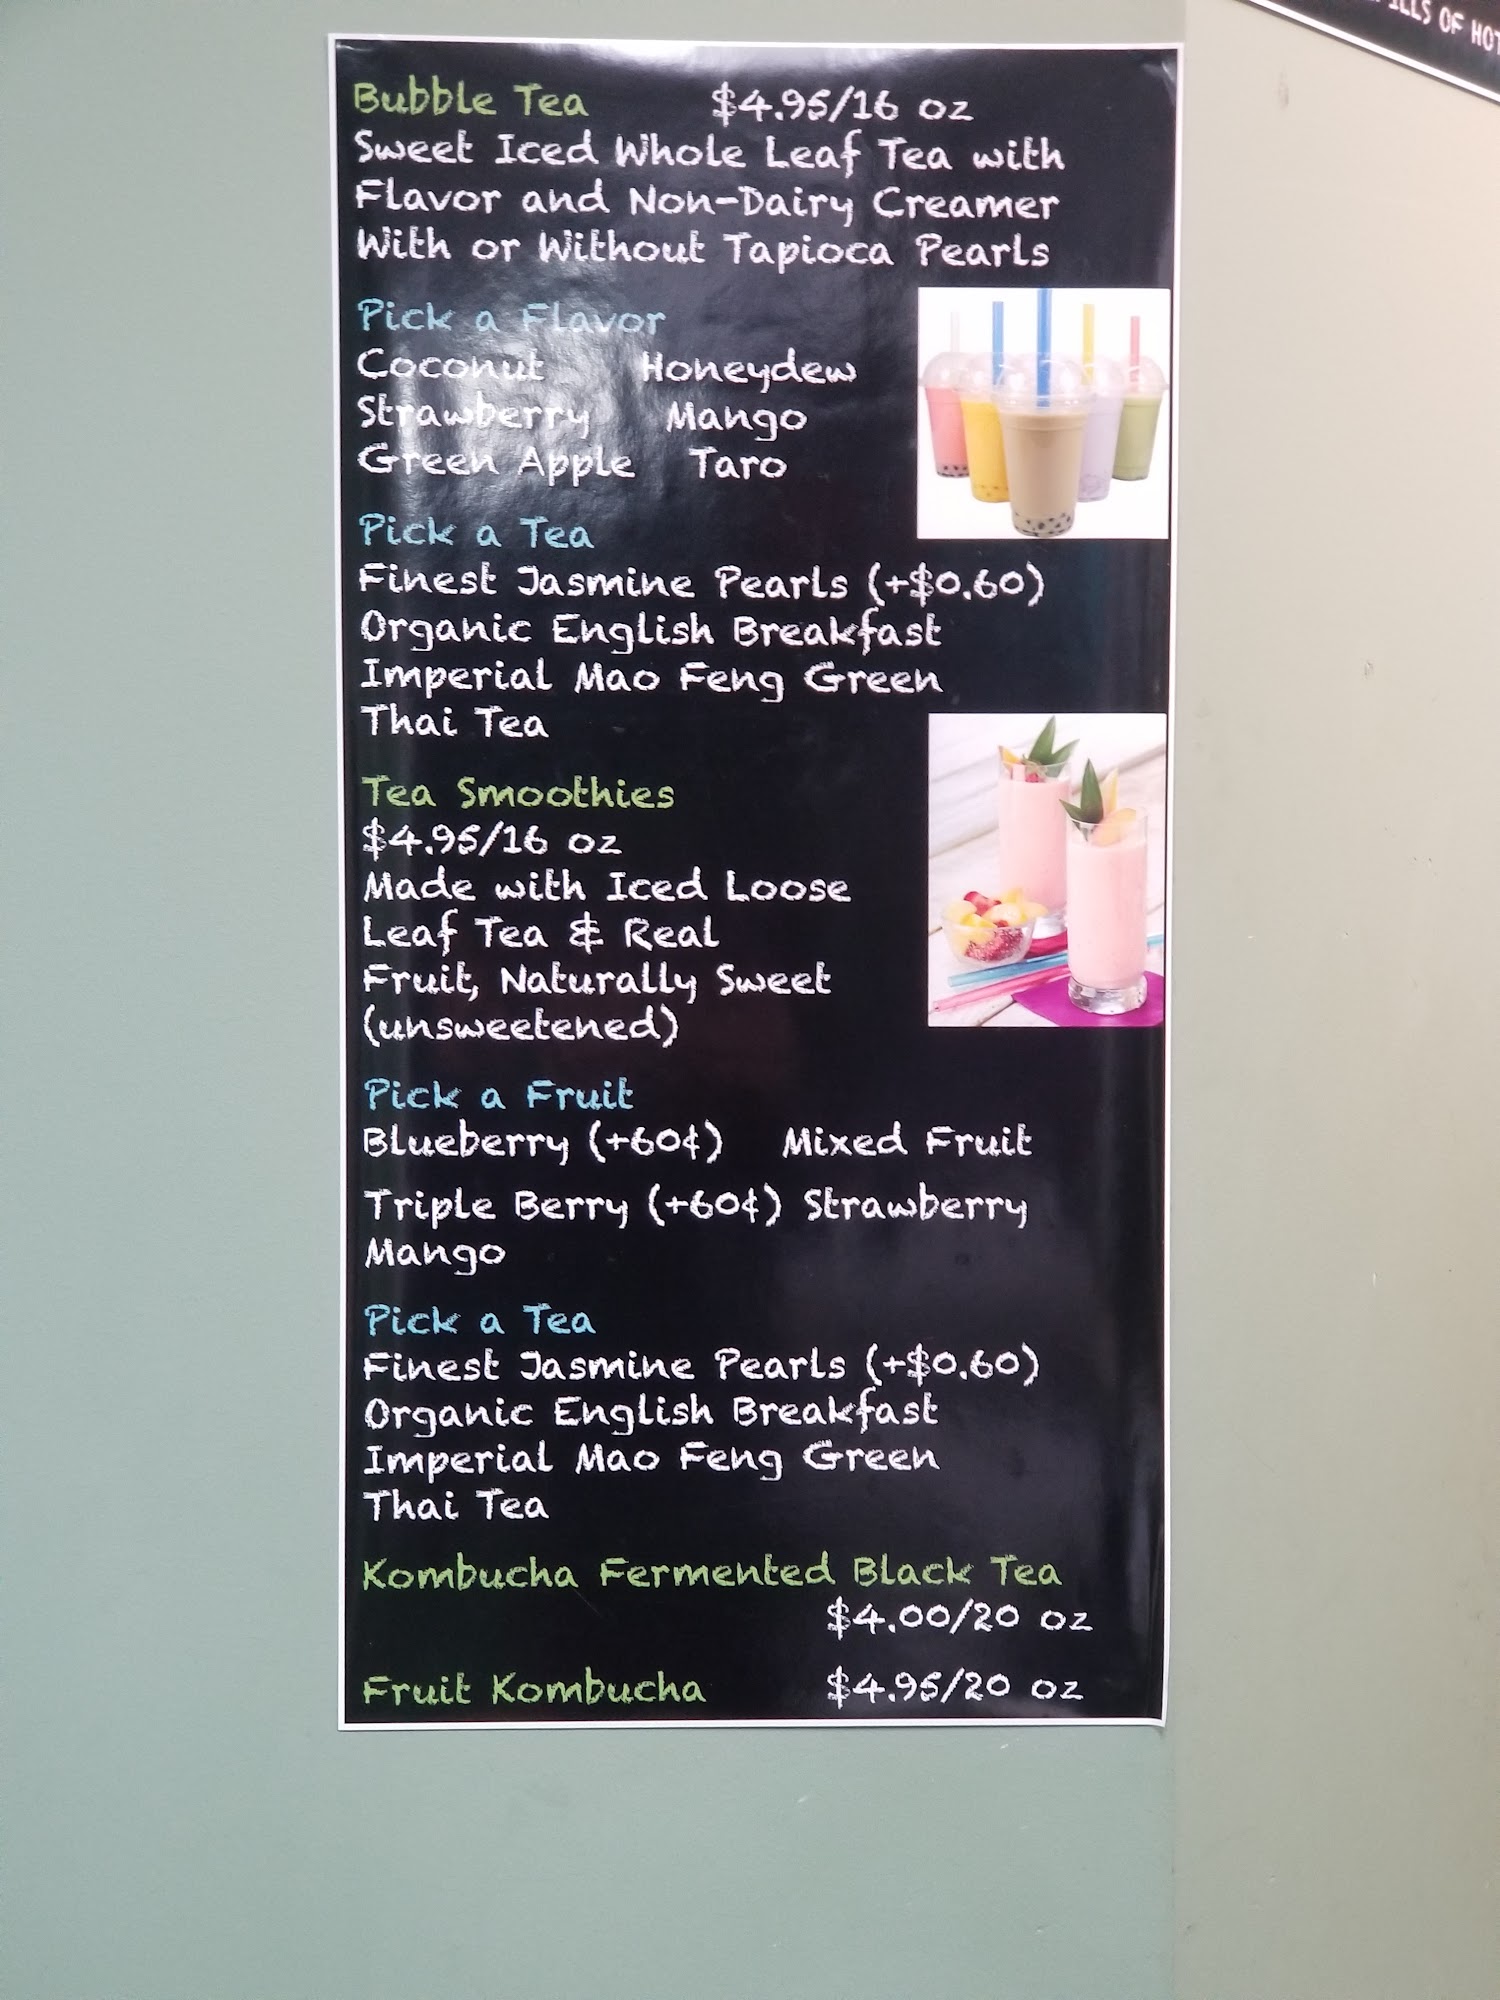 ILLS OF HOT
Bubble Tea $4.95/16 oz
Sweet Iced Whole Leaf Tea with
Flavor and Non-Dairy Creamer
With or Without Tapioca Pearls
Pick a Flavor
Coconut Honeydew
Strawberry Mango
Green Apple Taro
Pick a Tea
Finest Jasmine Pearls (+$0.60)
Organic English Breakfast
Imperial Mao Feng Green
Thai Tea
Tea Smoothies
$4.95/16 oz
Made with Iced Loose
Leaf Tea & Real
Fruit, Naturally Sweet
(unsweetened)
Pick a Fruit
Blueberry (+60¢) Mixed Fruit
Triple Berry (+60¢) Strawberry
Mango
Pick a Tea
Finest Jasmine Pearls (+$0.60)
Organic English Breakfast
Imperial Mao Feng Green
Thai Tea
Kombucha Fermented Black Tea
$4.00/20 oz
Fruit Kombucha $4.95/20 oz